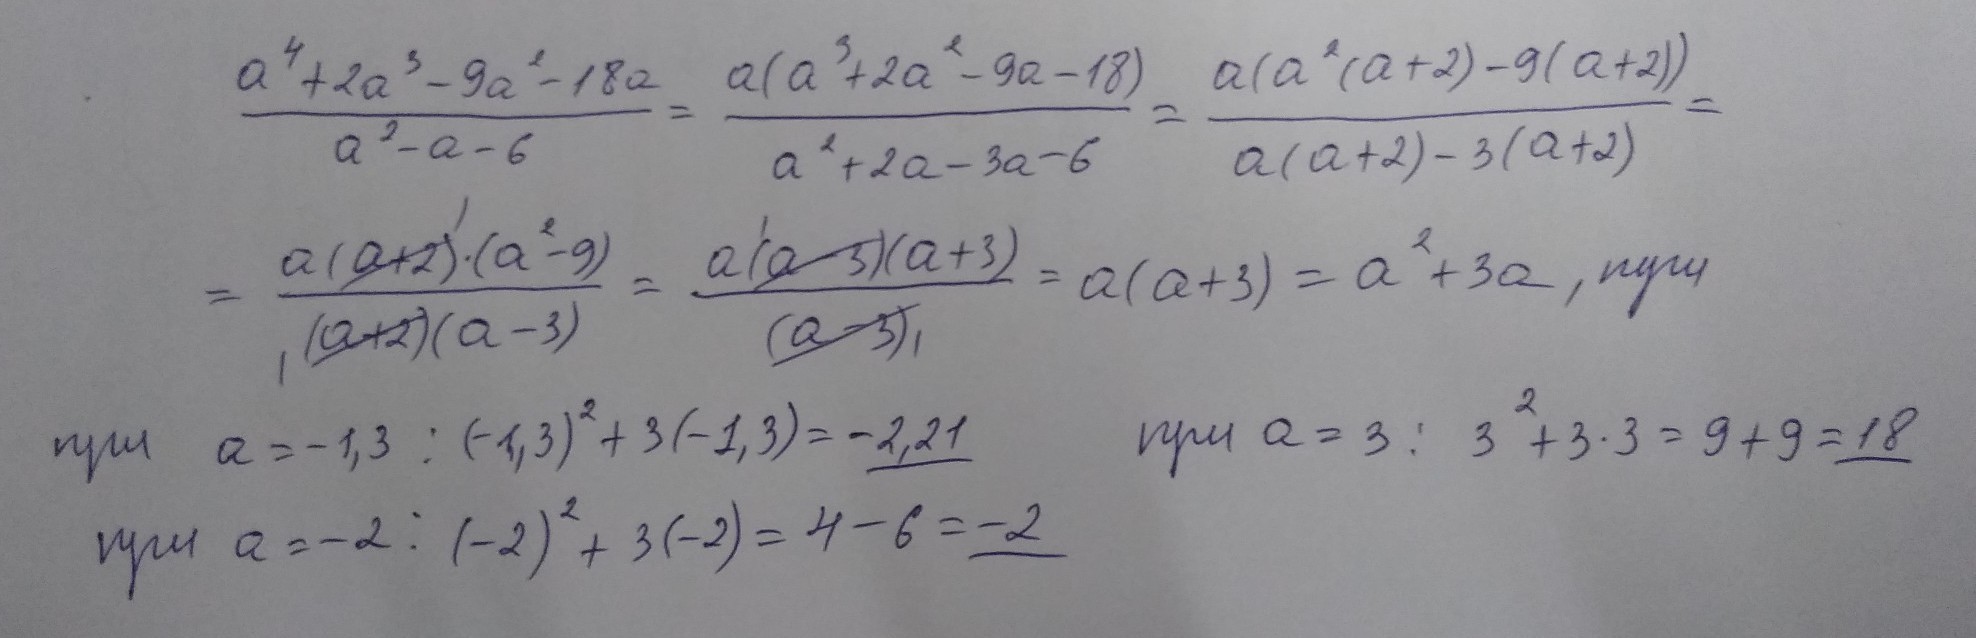 (a⁴+2a³-9a²-18a)/(a²-a-6) = (a(a³+2a²-9a-18))/(a²+2a-3a-6) = (a(a²(a+2)-9(a+2)))/(a(a+2)-3(a+2)) =
= (a(a+2)·(a²-9))/((a+2)(a-3)) = (a(a-3)(a+3))/((a-3)) = a(a+3) = a²+3a, при
при a=-1,3 : (-1,3)²+3(-1,3)=-2,21 при a=3: 3²+3·3=9+9=18
при a=-2: (-2)²+3(-2)=4-6=-2